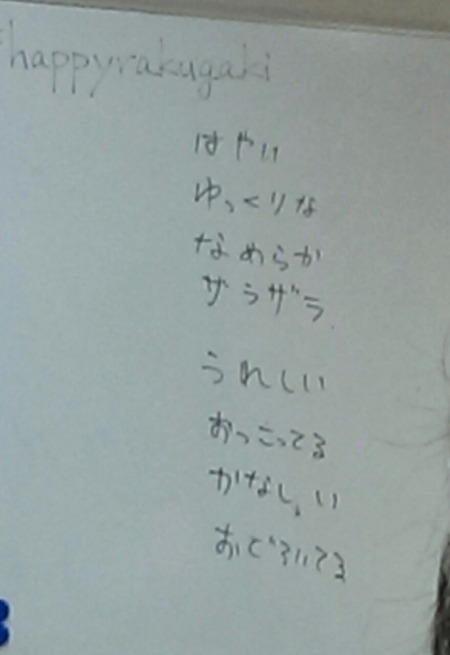 #happyrakugaki
はやい
ゆっくりな
なめらか
ザラザラ
うれしい
おっこってる
かなしい
おどろいてる